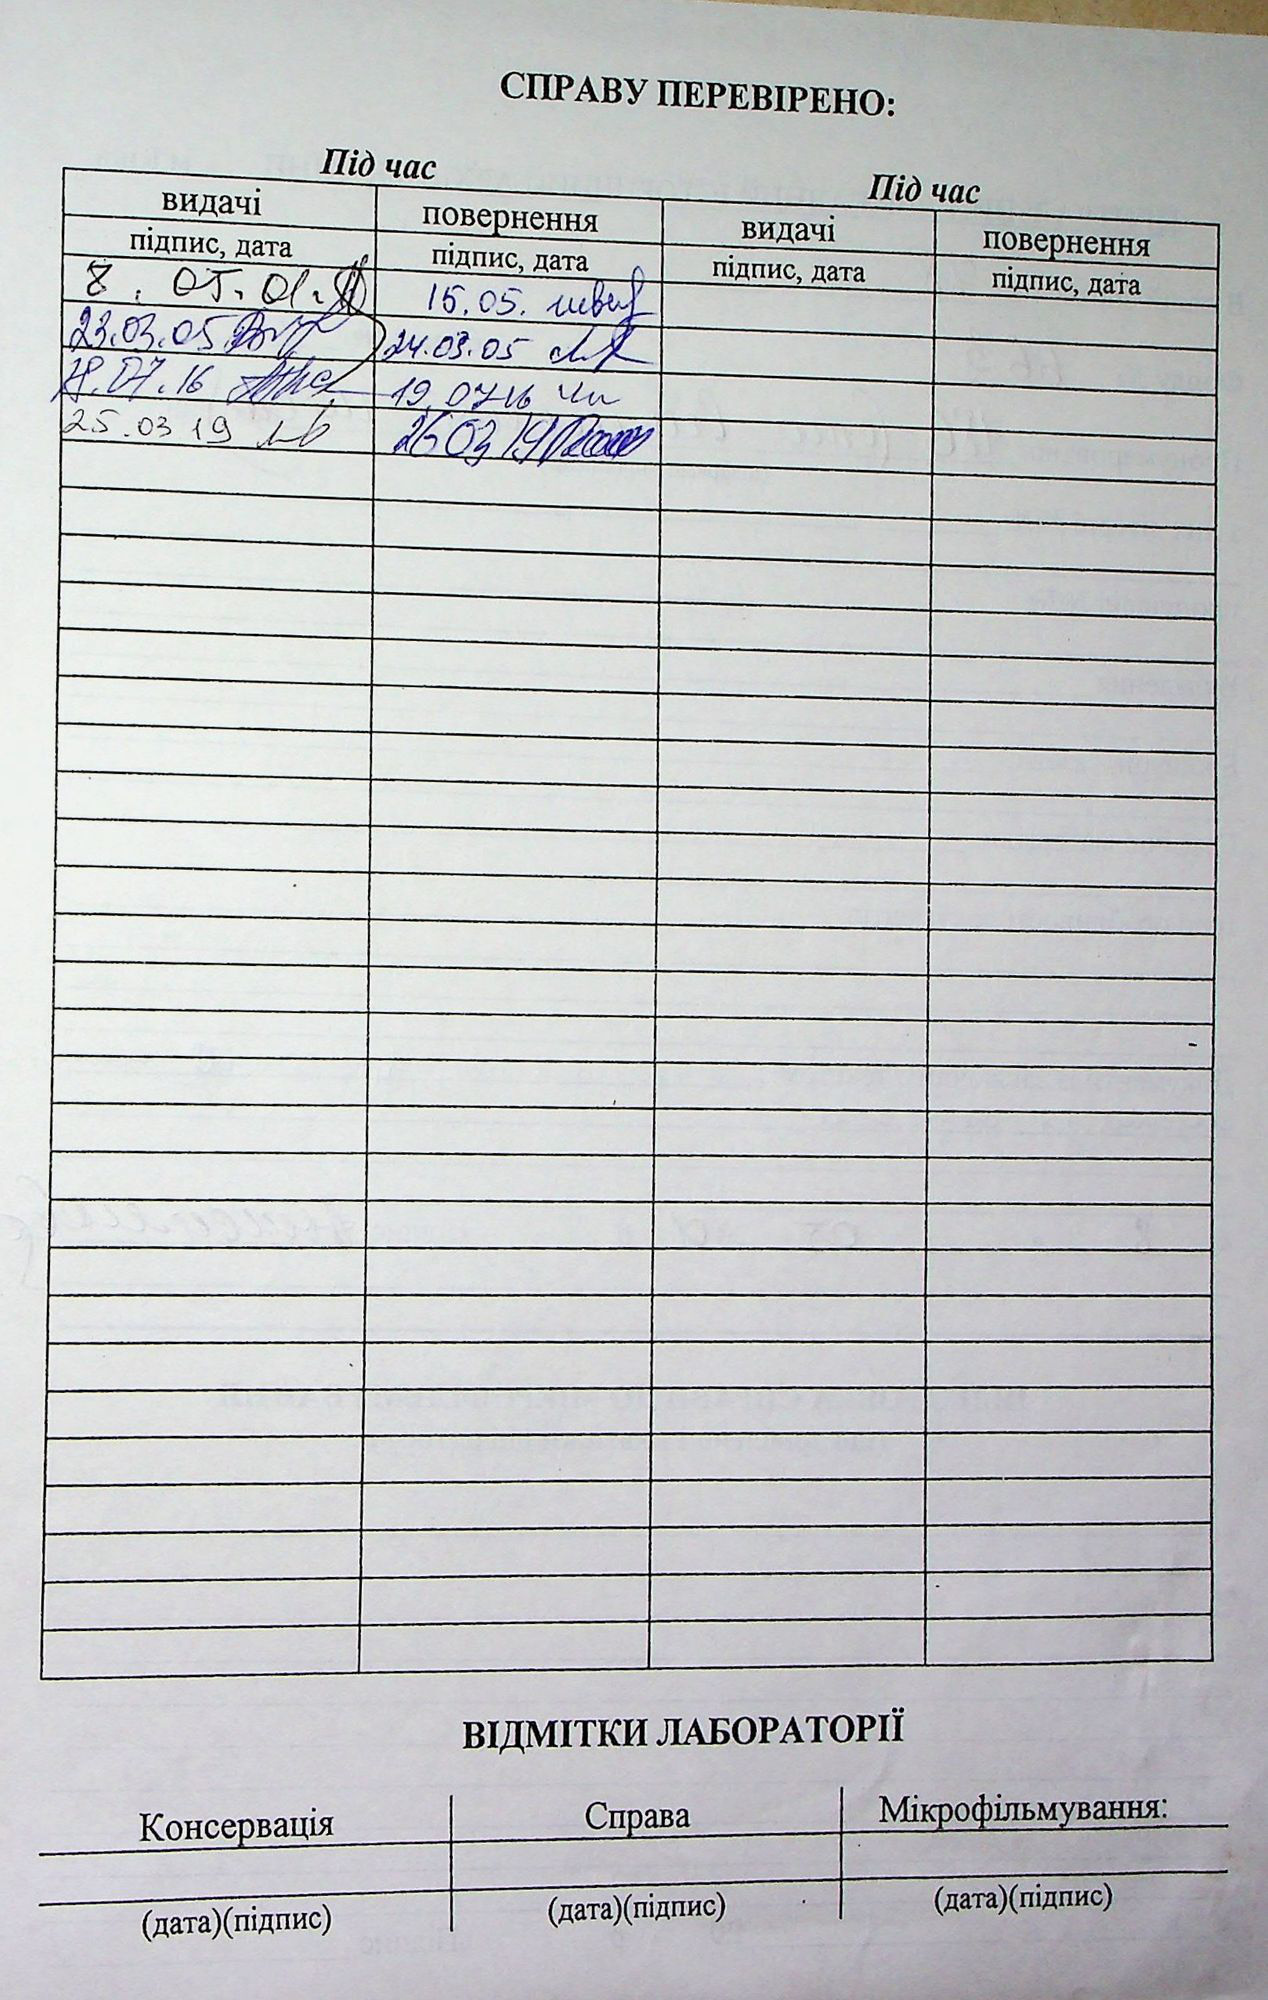 СПРАВУ ПЕРЕВІРЕНО:
Під час Під час
видачі повернення видачі повернення
підпис, дата підпис, дата підпис, дата підпис, дата
8. 05. 01. 15.05.
23.03.05 24.03.05
18.07.16 19.07 16
25.03 19 26 03 19
ВІДМІТКИ ЛАБОРАТОРІЇ
Консервація Справа Мікрофільмування:
(дата)(підпис) (дата)(підпис) (дата)(підпис)